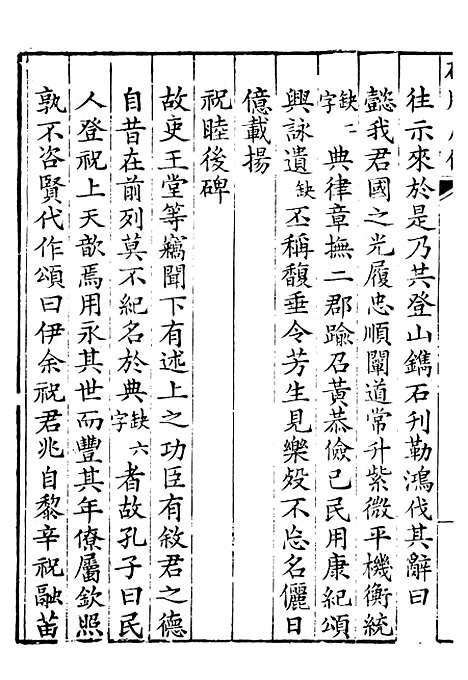 往示來於是乃共登山鐫石刋勒鴻伐其辭曰
懿我君國之光履忠順闡道常升紫微平機衡統
缺二字典律章撫二郡踰召黃恭儉已民用康紀頌
興詠遺缺丕稱馥垂令芳生見樂歿不忘名儷日
億載揚
祝睦後碑
故吏王堂等竊聞下有述上之功臣有敘君之德
自昔在前列莫不紀名於典缺六字者故孔子曰民
人登祝上天歆焉用永其世而豐其年僚屬欽熙
孰不咨賢代作頌曰伊余祝君兆自黎辛祝融苗